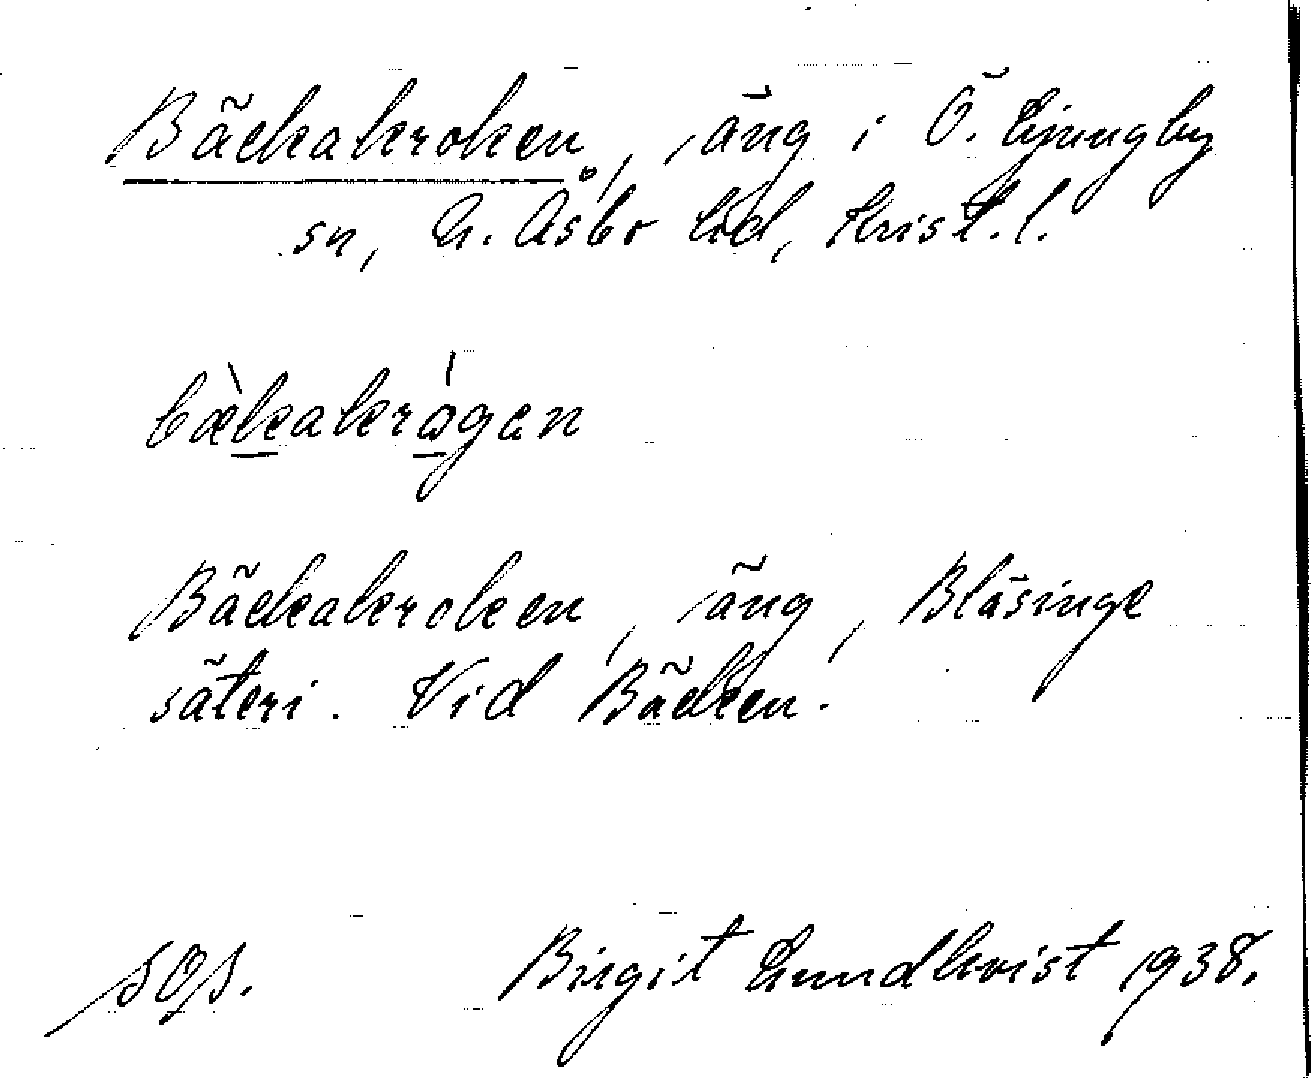 Bäckakroken, äng i Ö. Ljungby
sn, N. Åsbo hd, Krist. l.
bæ̀kakrágan
Bäckakroken, äng, Blåsinge
säteri. Vid Bäcken.
Birgit Lundkvist 1938.